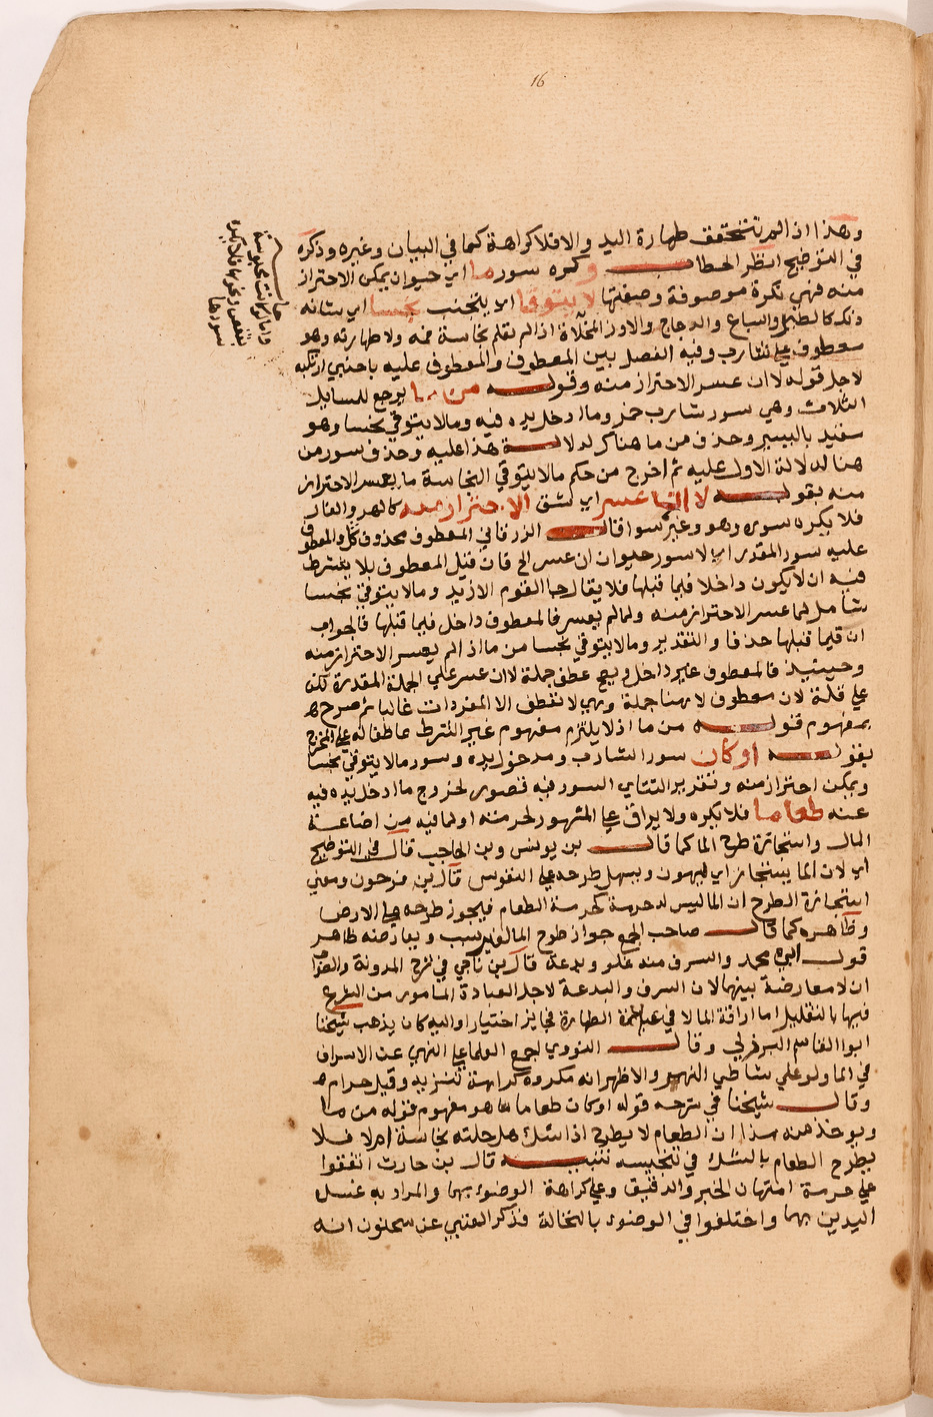 16
وهذا اذا لم تتحقق طهارة اليد والا فلا كراهة كما في البيان وغيره وذكره
في التوضيح انظر الحطاب وكره سور ما اي حيوان يمكن الاحتراز
منه فهي نكرة موصوفة وصفتها لا يتوقا اي يتجنب نجسا اي شانه
ذلك كالطير والسباع والدجاج والاوز المخلاة اذا لم تعلم نجاسة فمه ولا طهارته وهو
معطوف على شارب وفيه الفصل بين المعطوف والمعطوف عليه باجنبي ارتكبه
لاجل قوله لا ان عسر الاحتراز منه وقوله من ما يرجع للمسايل
الثلاث وهي سور شارب خمر وما ادخل يده فيه وما لا يتوقي نجسا وهو
مقيد باليسير وحذف من ما هناك لدلالة هذا عليه وحذف سور من
هنا لدلالة الاول عليه ثم اخرج من حكم ما لا يتوقي النجاسة ما يعسر الاحتراز
منه بقوله لا ان عسر اي شق الاحتراز منه كالهر والفار
فلا يكره سوره وهو وغيره سوا قال الزرقاني المعطوف محذوف
عليه سور المقدر اي لا سور حيوان ان عسر الخ فان قيل المعطوف بلا يشترط
فيه ان لا يكون داخلا فيما قبلها فلا يقال جا القوم لا زيد وما لا يتوقي نجسا
شامل لما عسر الاحتراز منه ولما لم يعسر فالمعطوف داخل فيما قبلها فالجواب
ان فيما قبلها حذفا والتقدير وما لا يتوقي نجسا من ما اذا لم يعسر الاحتراز منه
وحينيذ فالمعطوف غير داخل ويصح عطف جملة لا ان عسر علي الجملة المقدرة لكن
علي قلة لان معطوف لا هنا جملة وهي لا تعطف الا المفردات غالبا ثم صرح
بمفهوم قوله من ما اذ لا يلتزم مفهوم غير الشرط عاطفا له على المخرج
بقوله او كان سور الشارب ومدخل يده وسور ما لا يتوقي نجسا
ويمكن احترازه منه وتقدير الشتاي السور فيه قصور لخروج ما ادخل يده فيه
عنه طعاما فلا يكره ولا يراق علي المشهور لحرمته او لما فيه من اضاعة
المال واستجازة طرح الما كما قال بن يونس وبن الحاجب قال في التوضيح
اي لان الما يستجاز اي يهون ويسهل طرحه علي النفوس قال بن فرحون ومعني
استجازة الطرح ان الما ليس له حرمة كحرمة الطعام فيجوز طرحه علي الارض
وظاهره كما قال صاحب الجمع جواز طرح الما لغير سبب ويعارضه ظاهر
قول ابي محمد والسرف منه غلو وبدعة قال بن ناجي في شرح المدونة والصواب
ان لا معارضة بينهما لان السرف والبدعة لاجل العبادة المامور من الشرع
فيها بالتقليل اما اراقة الما لا في عبادة الطهارة فجايز اختيارا واليه كان يذهب شيخنا
ابوا القاسم البرزلي وقال النووي اجمع العلما علي النهي عن الاسراف
في الما ولو علي شاطي النهر والاظهر انه مكروه كراهة تنزيه وقيل حرام
وقال شيخنا في شرحه قوله او كان طعاما هو مفهوم قوله من ما
ويوخذ منه هذا ان الطعام لا يطرح اذا شك هل حلته نجاسة ام لا فلا
يطرح الطعام بالشك في تنجيسه تنبيه قال بن حارث اتفقوا
علي حرمة امتهان الخبز والدقيق وعلي كراهة الوضوء بهما والمراد به غسل
اليدين بهما واختلفوا في الوضوء بالنخالة فذكر العتبي عن سحنون انه
حاشية
واما ان كانت محبوسة
بقفص ونحوها فلا يكره
سورها